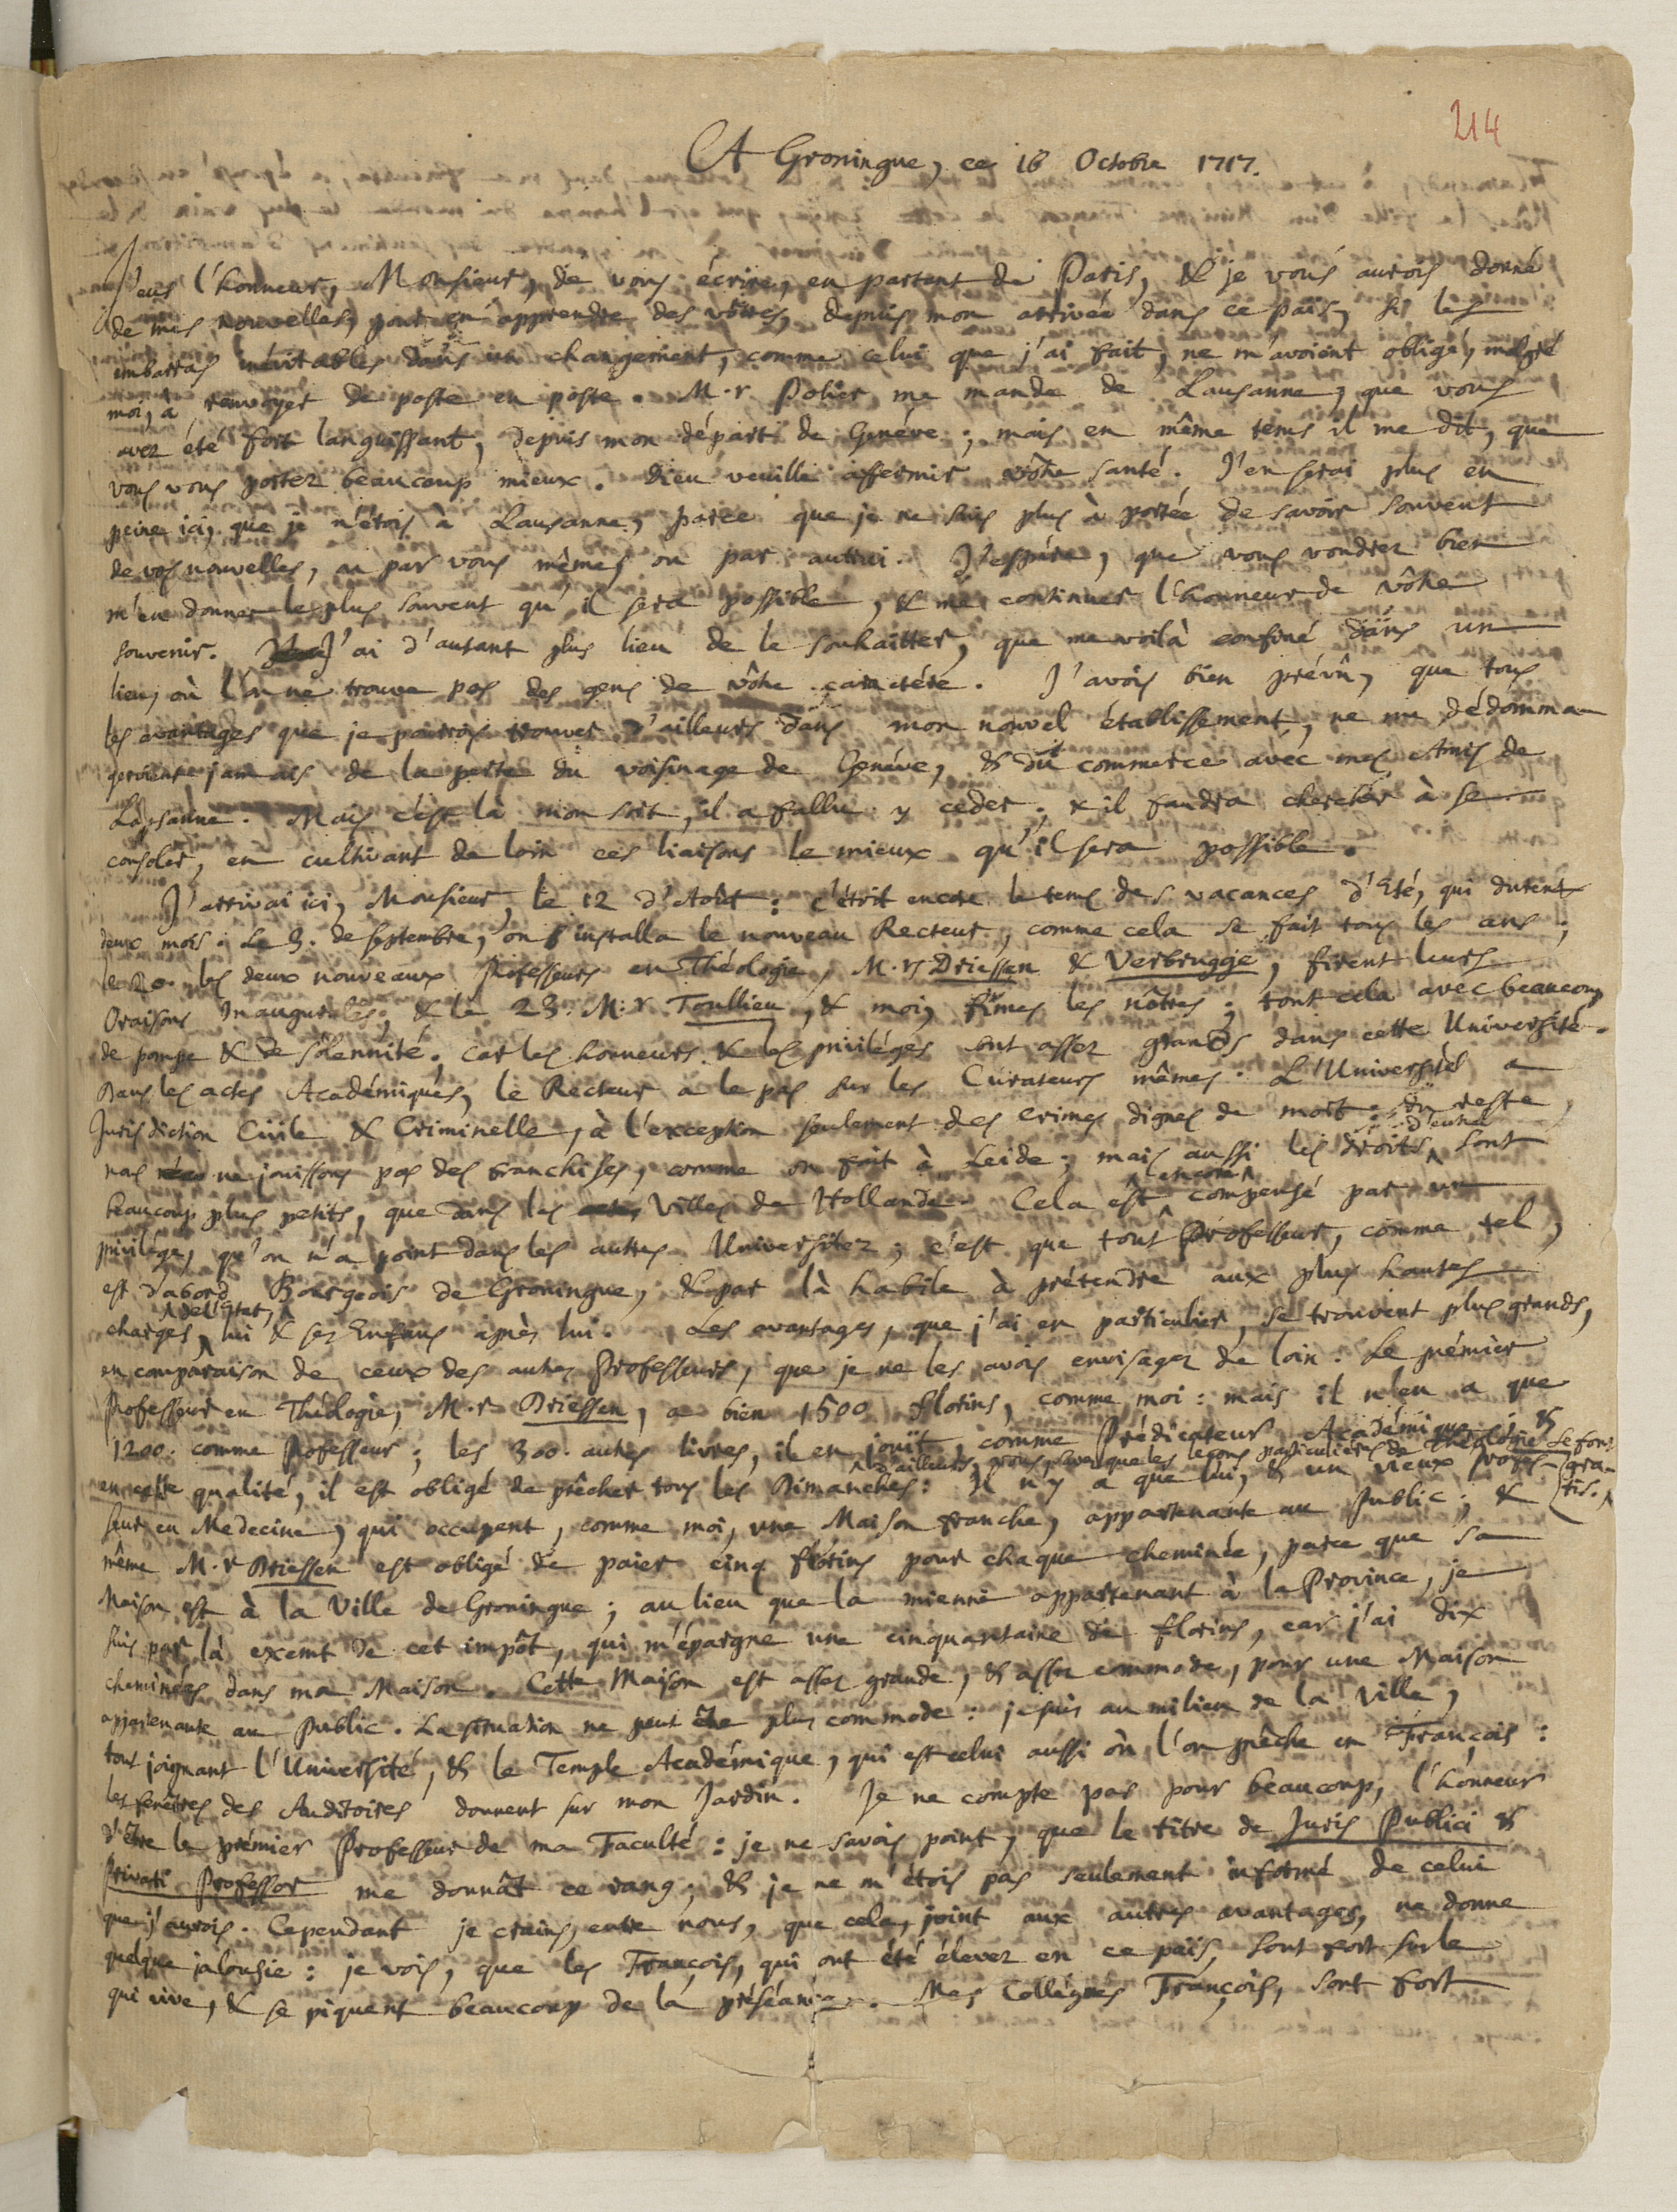 214
A Groningue, ces 16 Octobre 1717.
J'eus l'honneur, Monsieur, de vous écrire, en partant de Paris, & je vous aurois donné
de mes nouvelles, pour en apprendre des vôtres, depuis mon arrivée dans ce païs, si les
embarras inévitables dans un changement, comme celui que j'ai fait, ne m'avoient obligé, malgré
moi, à renvoyer de poste en poste. M.r Polier me mande de Lausanne, que vous
avez été fort languissant, depuis mon départ de Genève; mais en même tems il me dit, que
vous vous portez beaucoup mieux. Dieu veuille affermir vôtre santé. J'en serai plus en
peine ici, que je n'étois à Lausanne, parce que je ne suis plus à portée de savoir souvent
de vos nouvelles, ou par vous mêmes ou par autrui. J'espére, que vous voudrez bien
m'en donner le plus souvent qu'il sera possible, & me continuer l'honneur de vôtre
souvenir. J'ai d'autant plus lieu de le souhaitter, que me voilà confiné dans un
lieu, où l'on ne trouve pas des gens de vôtre caractére. J'avois bien prévû, que tous
les avantages que je pourrois trouver d'ailleurs dans mon nouvel établissement, ne me dédomma-
geroient jamais de la perte du voisinage de Genéve, & du commerce avec mes Amis de
Lausanne. Mais c'est là mon sort, il a fallu y ceder, & il faudra chercher à se
consoler, en cultivant de loin ces liaisons le mieux qu'il sera possible.
J'arrivai ici, Monsieur, le 12 d'Août: c'étoit encore le tems des vacances d'Eté, qui durent
deux mois. Le 3. de Septembre, on installa le nouveau Recteur, comme cela se fait tous les ans;
le 20. les deux nouveaux Professeurs en Théologie, M.rs Driessen & Verbrugge, firent leurs
Oraisons Inaugurales; & le 23. M.r Toullieu, & moi, fimes les nôtres; tout cela avec beaucoup
de pompe & de solennité. Car les honneurs & les priviléges sont assez grands dans cette Université.
Dans les actes Académiques, le Recteur a le pas sur les Curateurs mêmes. L'Université a
Jurisdiction Civile & Criminelle, à l'exception seulement des crimes dignes de mort: du reste,
nous ne jouissons pas des franchises, comme on fait à Leide; mais aussi les droits d'entrée sont
beaucoup plus petits, que dans les Villes de Hollande. Cela est encore compensé par un
privilége, qu'on n'a point dans les autres Universitez; c'est que tout Professeur, comme tel,
est d'abord Bourgeois de Groningue, & par là habile à prétendre aux plus hautes
charges de l'Etat, lui & ses Enfans après lui. Les avantages, que j'ai en particulier, se trouvent plus grands,
en comparaison de ceux des autres Professeurs, que je ne les avois envisagez de loin. Le prémier
Professeur en Théologie, M.r Driessen, a bien 1500 florins, comme moi: mais il n'en a que
1200. comme Professeur; les 300. autres livres, il en jouït, comme Prédicateur Académique; &
en cette qualité, il est obligé de prêcher tous les Dimanches: d'ailleurs, vous savez que les leçons particuliéres de Théologie se font gratis. Il n'y a que lui, & un vieux Profes-
seur en Medecine, qui occupent, comme moi, une Maison franche, appartenante au Public; &
même M.r Driessen est obligé de paier cinq florins pour chaque cheminée, parce que sa
Maison est à la Ville de Groningue; au lieu que la mienne appartenant à la Province, je
suis par là exemt de cet impôt, qui m'épargne une cinquantaine de florins, car j'ai dix
cheminées dans ma Maison. Cette Maison est assez grande, & assez commode, pour une Maison
appartenante au Public. La situation ne peut être plus commode: je suis au milieu de la Ville,
tout joignant l'Université, & le Temple Académique, qui est celui aussi où l'on prêche en François:
les fenêtres des Auditoires donnent sur mon Jardin. Je ne compte pas pour beaucoup, l'honneur
d'être le prémier Professeur de ma Faculté: je ne savois point, que le titre de Juris Publici &
Privati Professor me donnât ce rang; & je ne m'étois pas seulement informé de celui
que j'aurois. Cependant je crains, entre nous, que cela, joint aux autres avantages, ne donne
quelque jalousie: je vois, que les François, qui ont été élevez en ce païs, sont fort sur le
qui vive, & se piquent beaucoup de la préséance. Mes Collégues François, sont fort